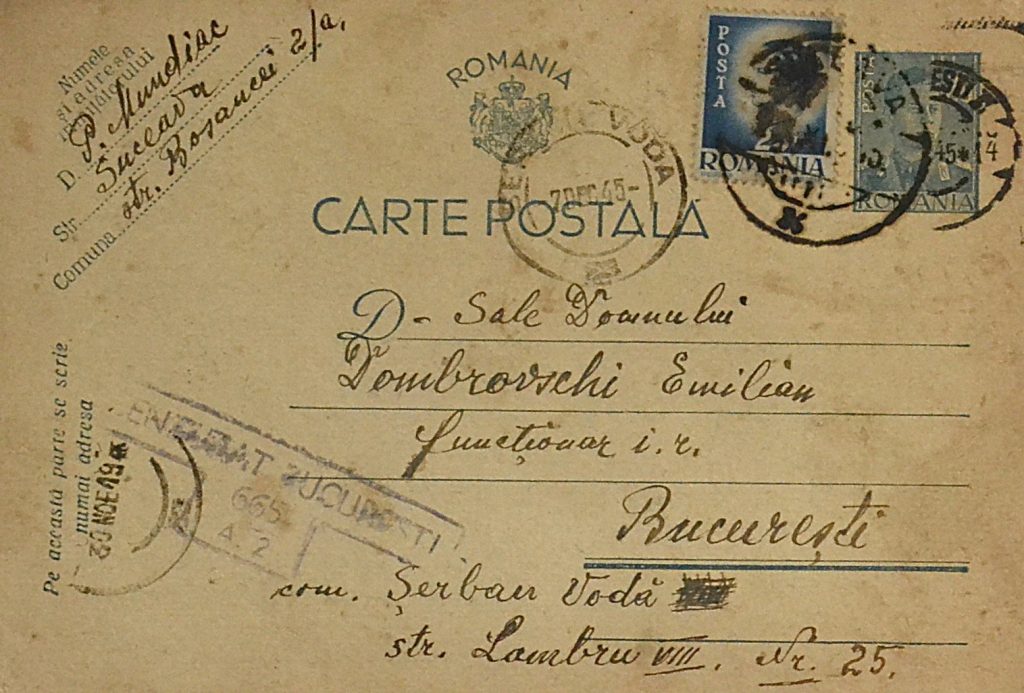 Numele
și adresa
trimițătorului
D. P. Mundiac
Suceava
Str. str. Bosancei 2/a.
Comuna
ROMANIA
CARTE POSTALĂ
POSTA
ROMANIA
POSTA
ROMANIA
VODA
7 DEC 45
45
14
D-Sale Domnului
Dombrovschi Emilian
funcționar i. r.
București
com. Șerban Vodă
str. Lambru VIII. Nr. 25.
Pe această parte se scrie
numai adresa
30 NOE 19
CENZURAT BUCUREȘTI
665
A. 2